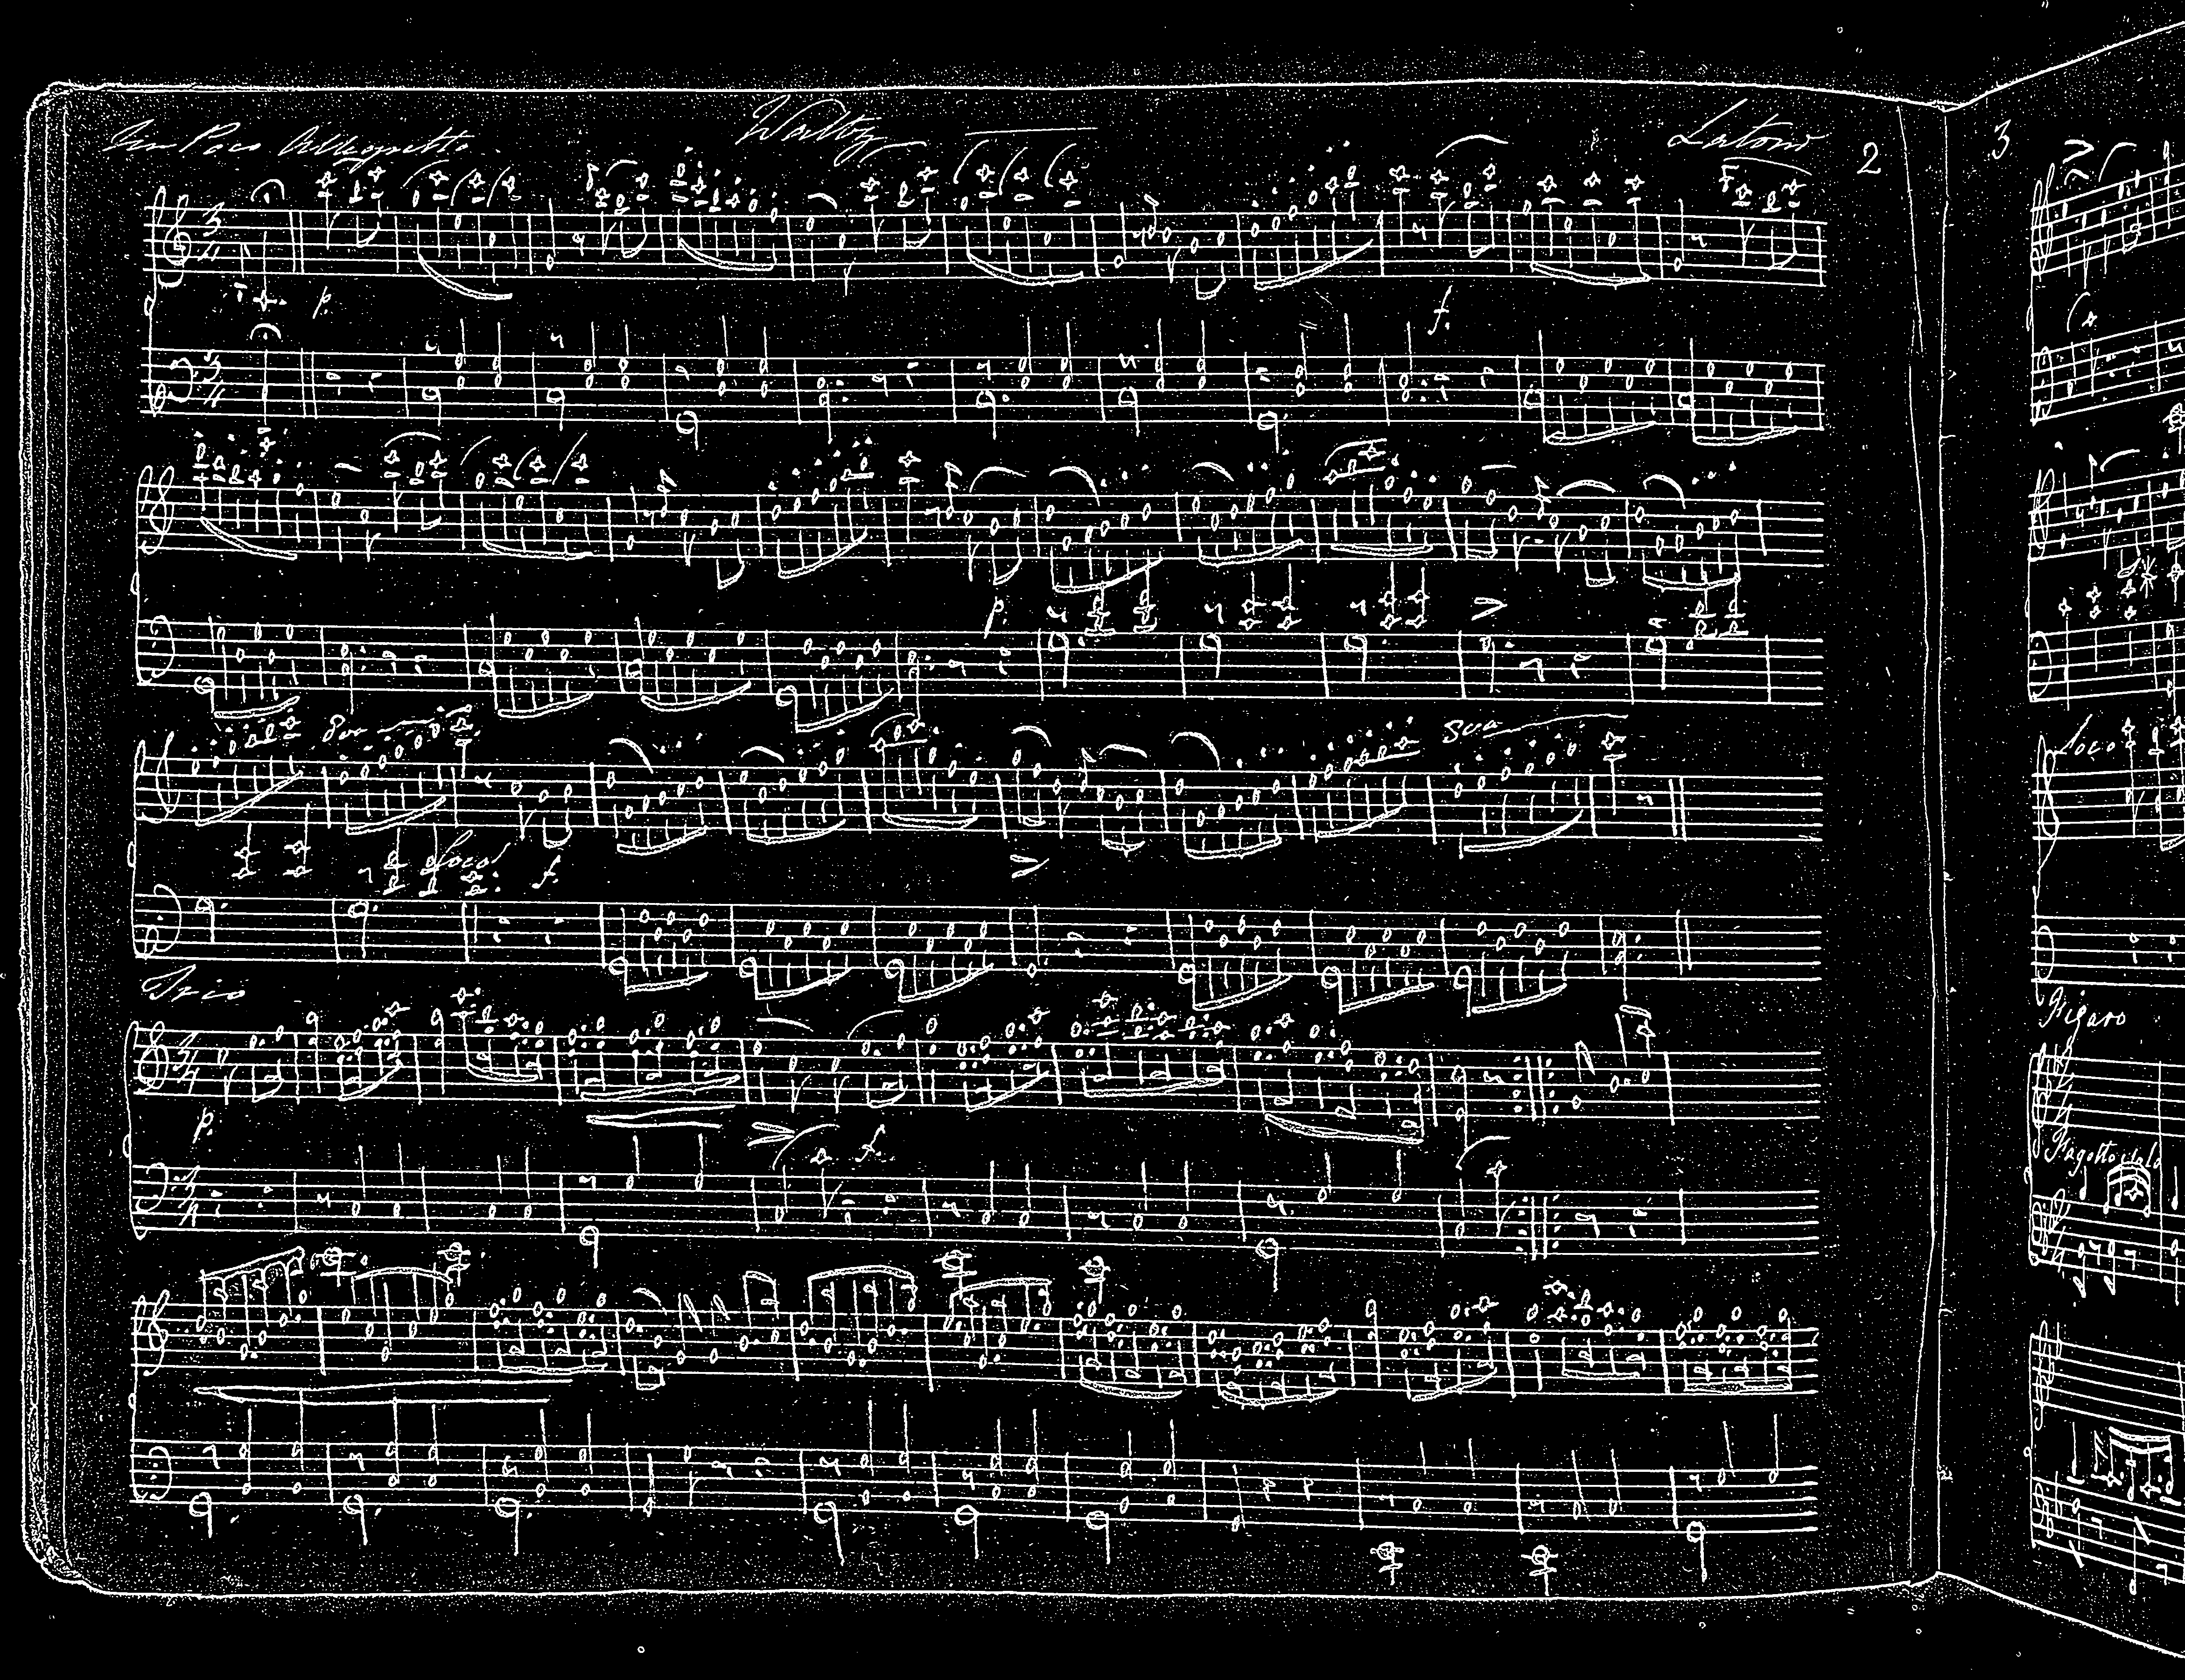 Un Poco Allegretto Waltz Latour 2
p.
f.
p.
8va
loco f.
8va
Trio
p.
f.
3
loco
Figaro
Fagotto solo